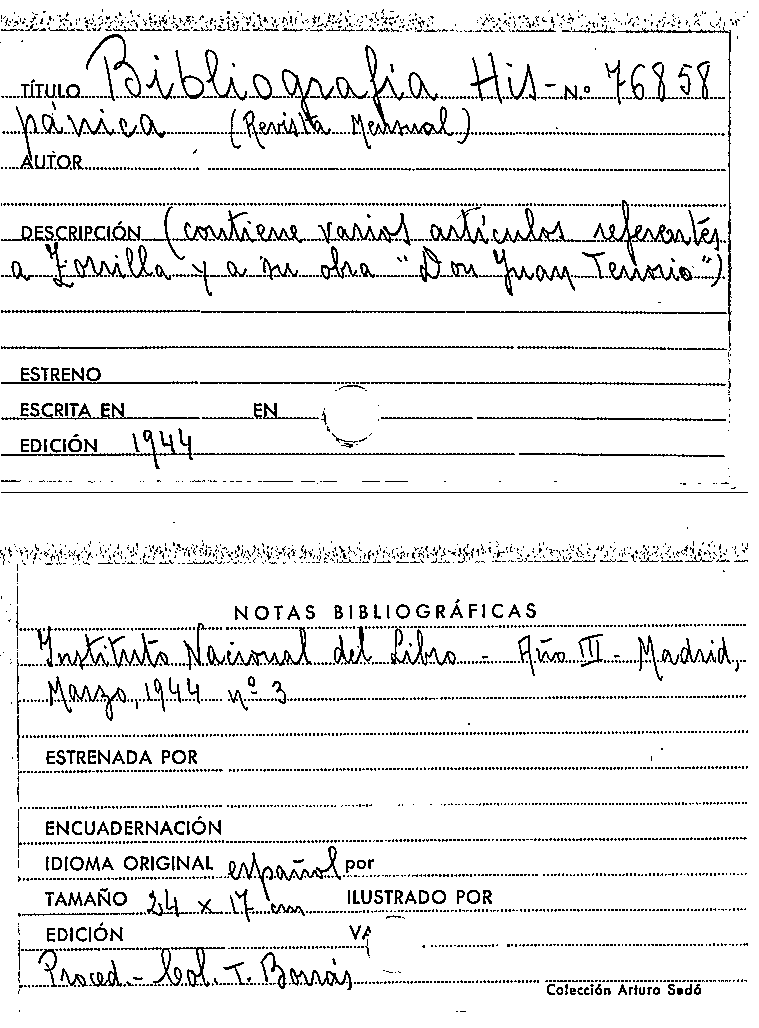 TÍTULO Bibliografía His- N.º 76858
pánica (Revista Mensual)
AUTOR
DESCRIPCIÓN (contiene varios artículos referentes
a Zorrilla y a su obra "Don Juan Tenorio")
ESTRENO
ESCRITA EN EN
EDICIÓN 1944
NOTAS BIBLIOGRÁFICAS
Instituto Nacional del Libro - Año III - Madrid,
Marzo, 1944 nº 3
ESTRENADA POR
ENCUADERNACIÓN
IDIOMA ORIGINAL español por
TAMAÑO 24 x 17 cm ILUSTRADO POR
EDICIÓN
Proced.- Col. T. Borrás
Colección Arturo Sedó